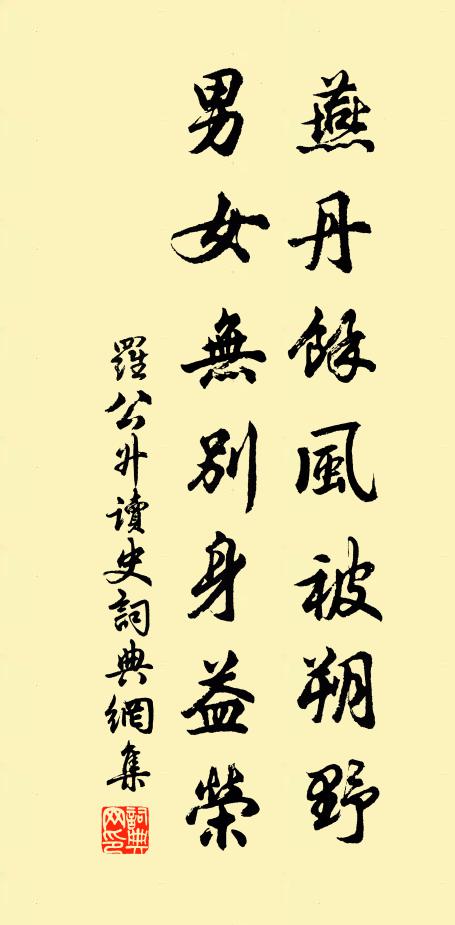 燕丹餘風被朔野
男女無別身益榮
羅公升讀史詞典網集
詞典網印